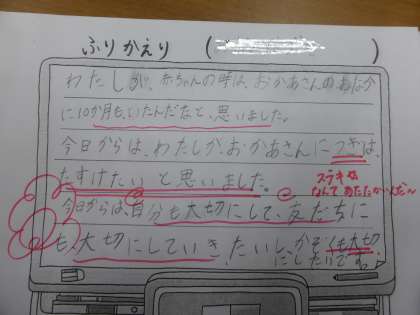 ふりかえり （　　　　）
わたしが、赤ちゃんの時は、おかあさんのおなか
に10か月も、いたんだなと、思いました。
今日からは、わたしが、おかあさんに つぎは、
たすけたい と思いました。
ステキな
なんて あたたかい人だ〜
今日からは、自分も大切にして、友だちに
も、大切にしていき、たいし、かぞくも大切
にしたいです。